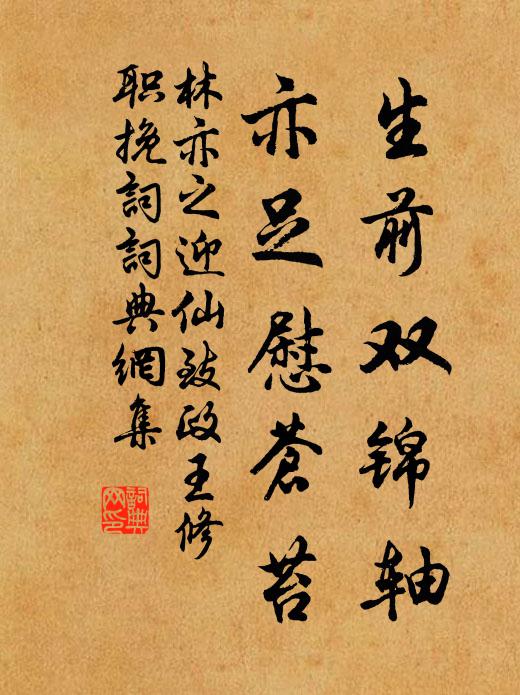 生前双锦轴
亦足慰蒼苔
林亦之迎仙致政王修
职挽詞詞典網集
詞典网印